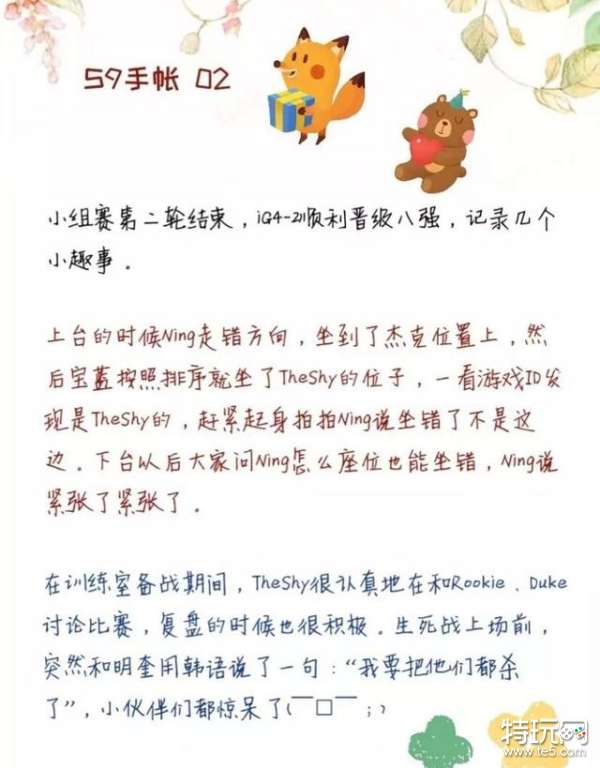 S9手帐 02
小组赛第二轮结束，iG4-2顺利晋级八强，记录几个
小趣事。
上台的时候Ning走错方向，坐到了杰克位置上，然
后宝蓝按照排序就坐了TheShy的位子，一看游戏ID发
现是TheShy的，赶紧起身拍拍Ning说坐错了不是这
边。下台以后大家问Ning怎么座位也能坐错，Ning说
紧张了紧张了。
在训练室备战期间，TheShy很认真地在和Rookie、Duke
讨论比赛，复盘的时候也很积极。生死战上场前，
突然和明奎用韩语说了一句：“我要把他们都杀
了”，小伙伴们都惊呆了(￣□￣；)
特玩网
www.te5.com